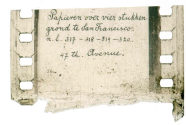 Papieren over vier stukken
grond te San Francisco.
n.l. 317 - 318 - 319 - 320.
47 th. Avenue.